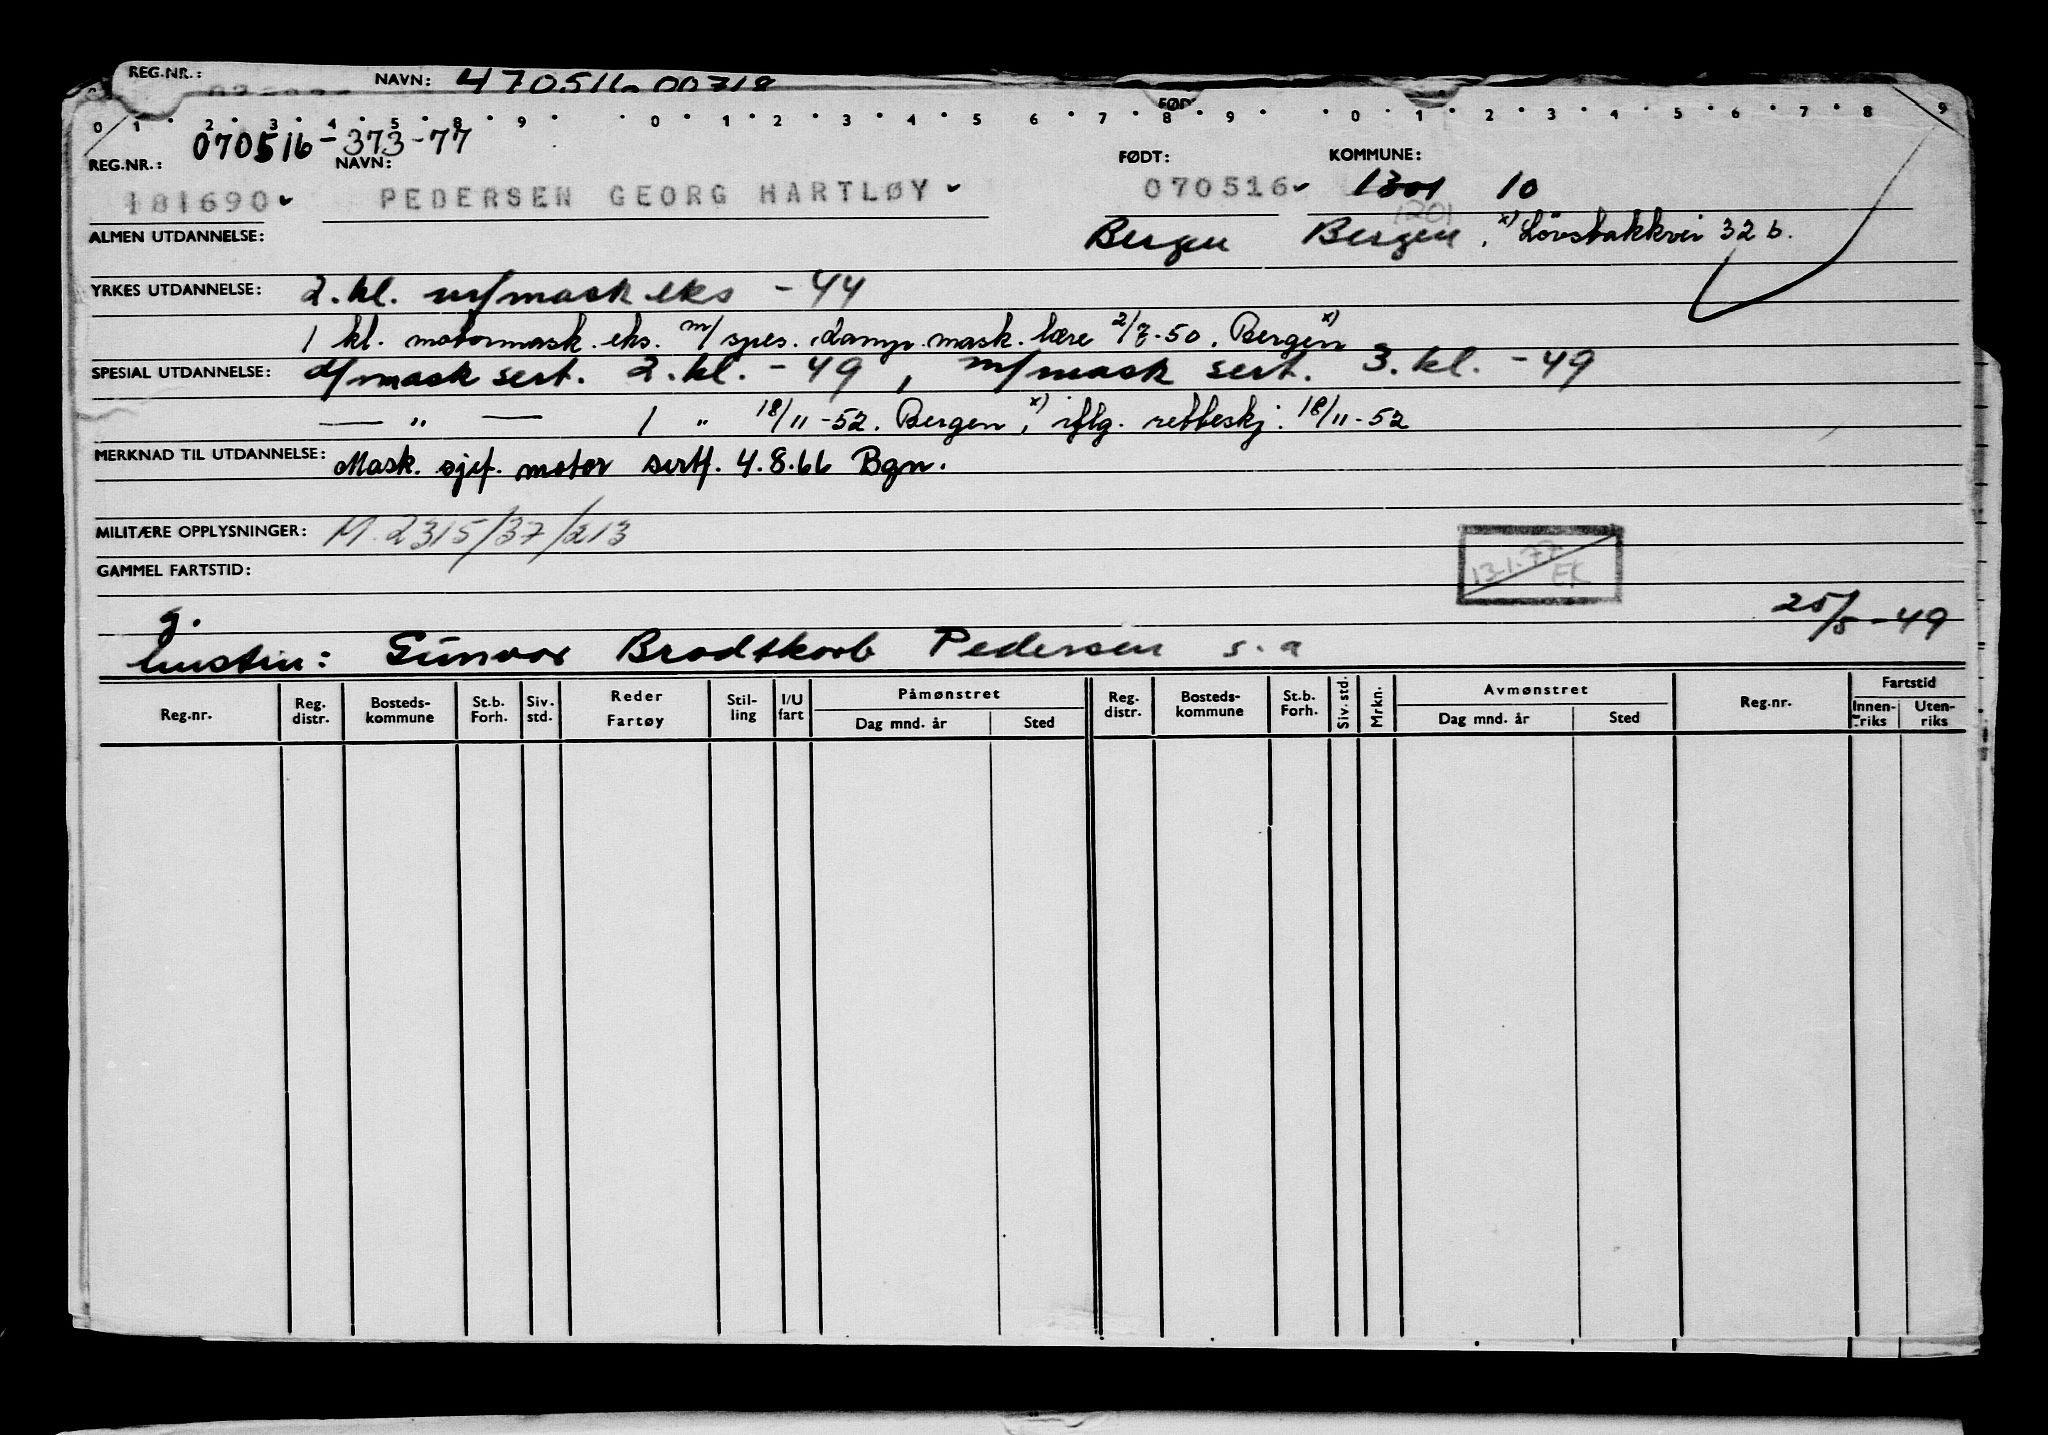 REG.NR.: NAVN: 470516 00718
0 1 2 3 4 5 8 9 0 1 2 3 4 5 6 7 8 9 0 1 2 3 4 5 6 7 8 9
070516-373-77
REG.NR.: NAVN: FØDT: KOMMUNE:
181690 PEDERSEN GEORG HARTLØY 070516 1301 10
1201
ALMEN UTDANNELSE: Bergen Bergen, x) Lövstakkvei 32 b.
YRKES UTDANNELSE: 2.kl. m/mask eks - 44
1 kl. motormask. eks. m/ spes. damp. mask. lære 2/7-50. Bergen x)
SPESIAL UTDANNELSE: d/mask sert. 2.kl. - 49, m/mask sert. 3.kl. - 49
— " — 1 " 18/11-52. Bergen, x) iflg. retteskj. 18/11-52
MERKNAD TIL UTDANNELSE: Mask. sjef. motor sertf. 4.8.66 Bgn.
MILITÆRE OPPLYSNINGER: M. 2315/37/213
13.1.77 EK
GAMMEL FARTSTID:
25/5-49
g.
hustru: Gunvor Brodtkorb Pedersen s.a
Reg.nr. Reg. distr. Bosteds-kommune St.b. Forh. Siv. std. Reder Fartøy Stil-ling I/U fart Påmønstret Reg. distr. Bosteds-kommune St.b. Forh. Siv. std. Mrkn. Avmønstret Reg.nr. Fartstid
Dag mnd. år Sted Dag mnd. år Sted Innen-riks Uten-riks